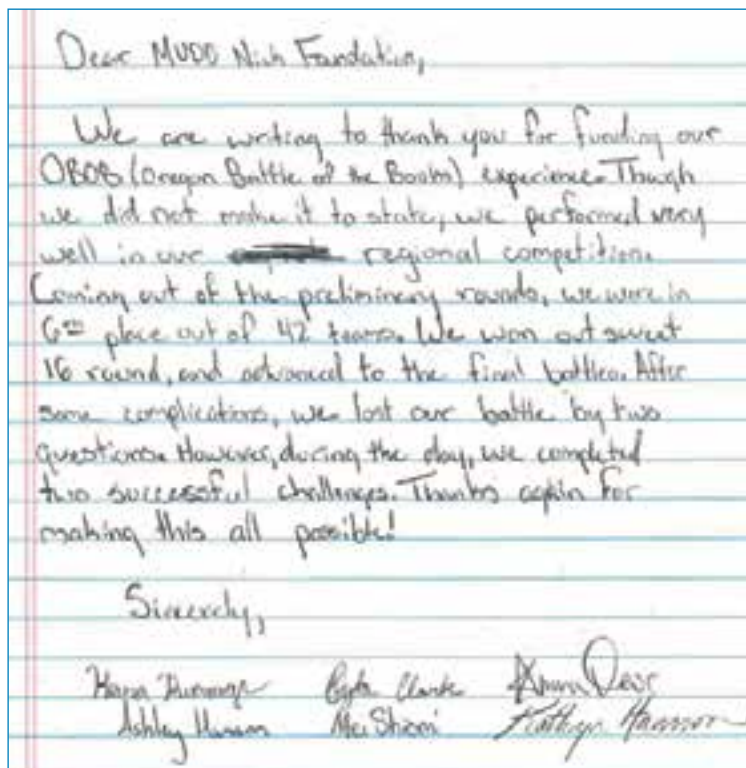 Dear MUDD Nick Foundation,
We are writing to thank you for funding our
OBOB (Oregon Battle of the Books) experience. Though
we did not make it to state, we performed very
well in our regional competition.
Coming out of the preliminary rounds, we were in
6th place out of 42 teams. We won out sweet
16 round, and advanced to the final battles. After
some complications, we lost our battle by two
questions. However, during the day, we completed
two successful challenges. Thanks again for
making this all possible!
Sincerely,
Clarke
Ashley Mei Kathryn